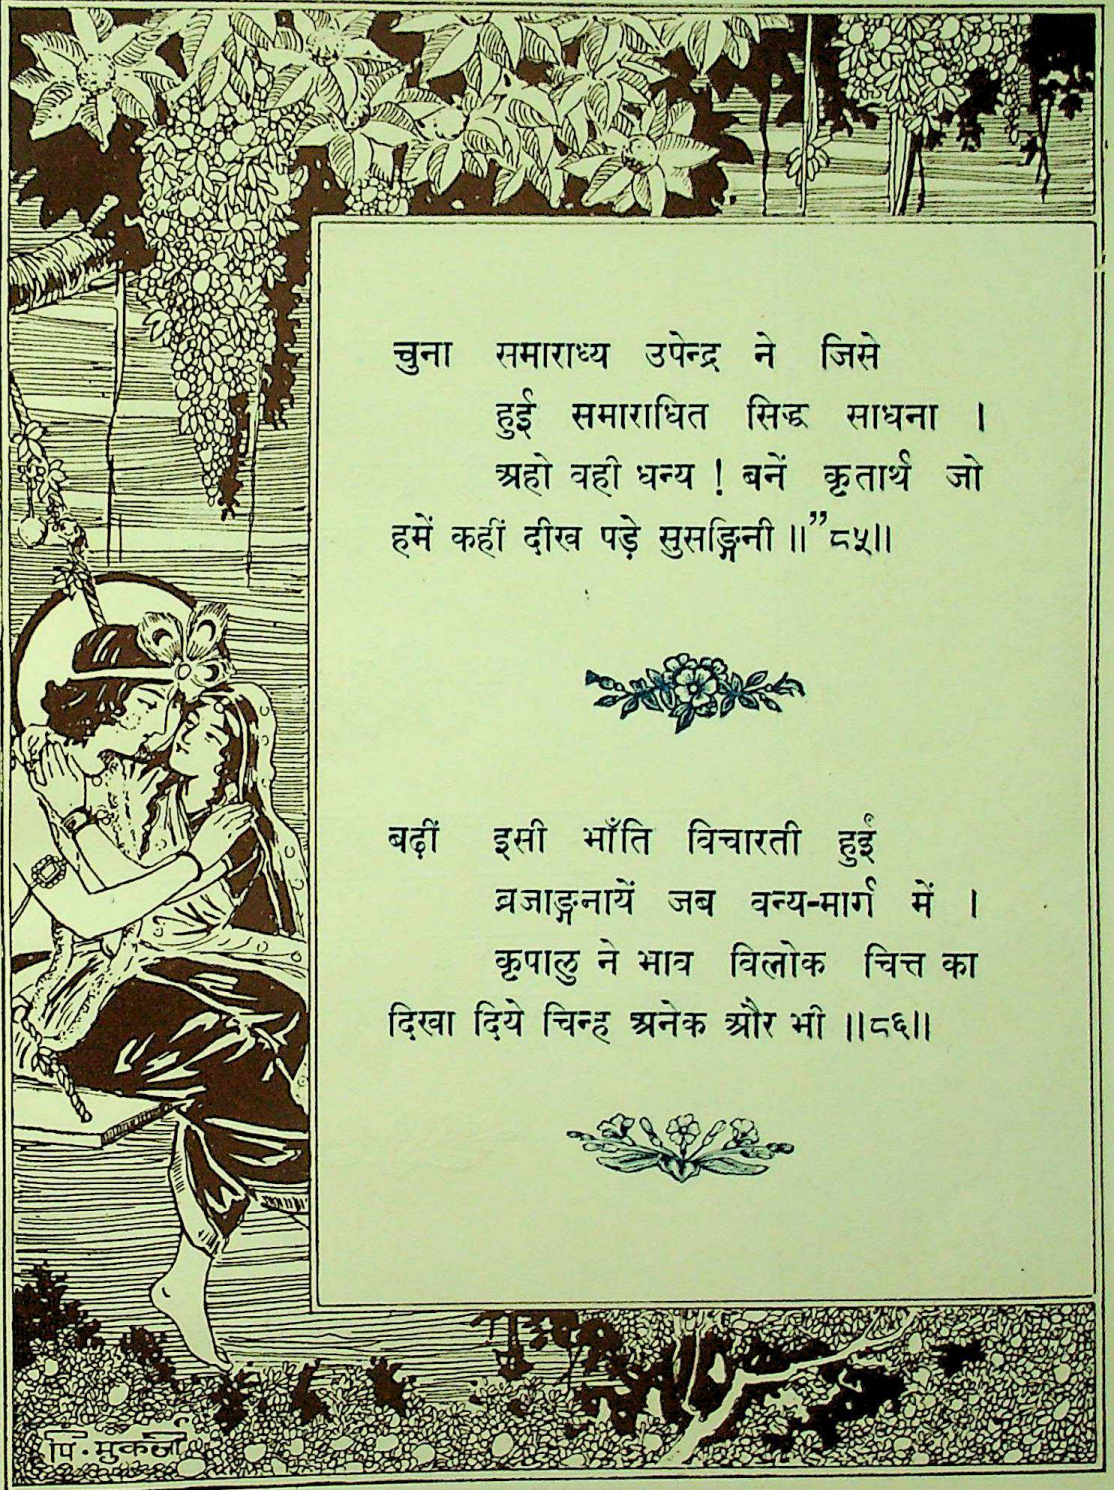 चुना समाराध्य उपेन्द्र ने जिसे
हुई समाराधित सिद्ध साधना ।
अहो वही धन्य ! बनें कृतार्थ जो
हमें कहीं दीख पड़े सुसङ्गिनी ॥” ८५॥
बढ़ीं इसी भाँति विचारती हुईं
व्रजाङ्गनायें जब वन्य-मार्ग में ।
कृपालु ने भाव विलोक चित्त का
दिखा दिये चिन्ह अनेक और भी ॥८६॥
पि. मुकर्जी